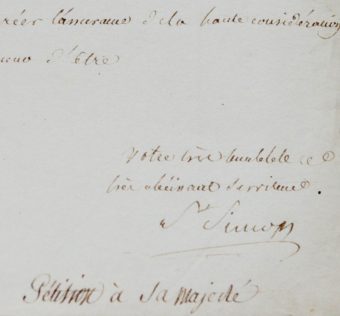 réer l'assurance de la haute considération
neur d'être
votre très humble et
très obéissant serviteur.
St Simon
Pétition à Sa Majesté